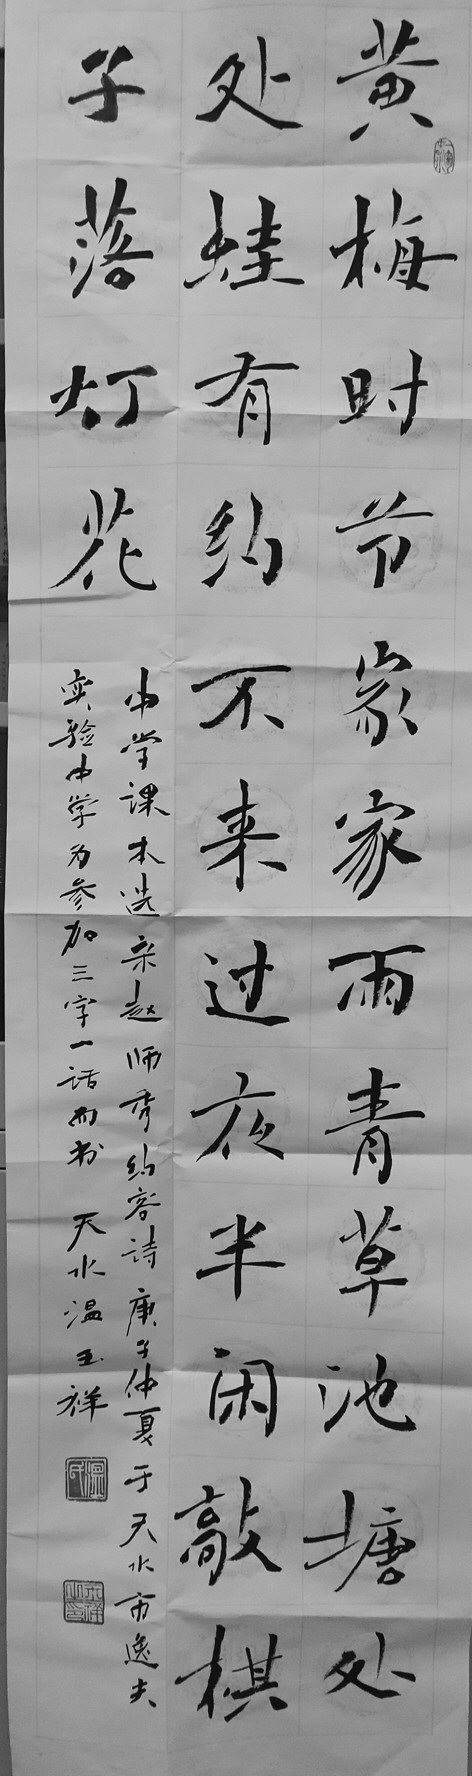 黄梅时节家家雨青草池塘处
处蛙有约不来过夜半闲敲棋
子落灯花
中学课本选宋赵师秀约客诗 庚子仲夏于天水市逸夫
实验中学为参加三字一话而书 天水温玉祥